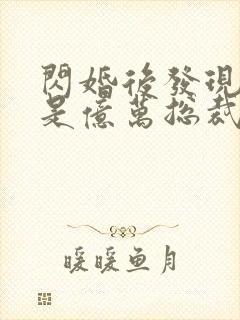 閃婚後發現
是億萬總裁
暖暖鱼月